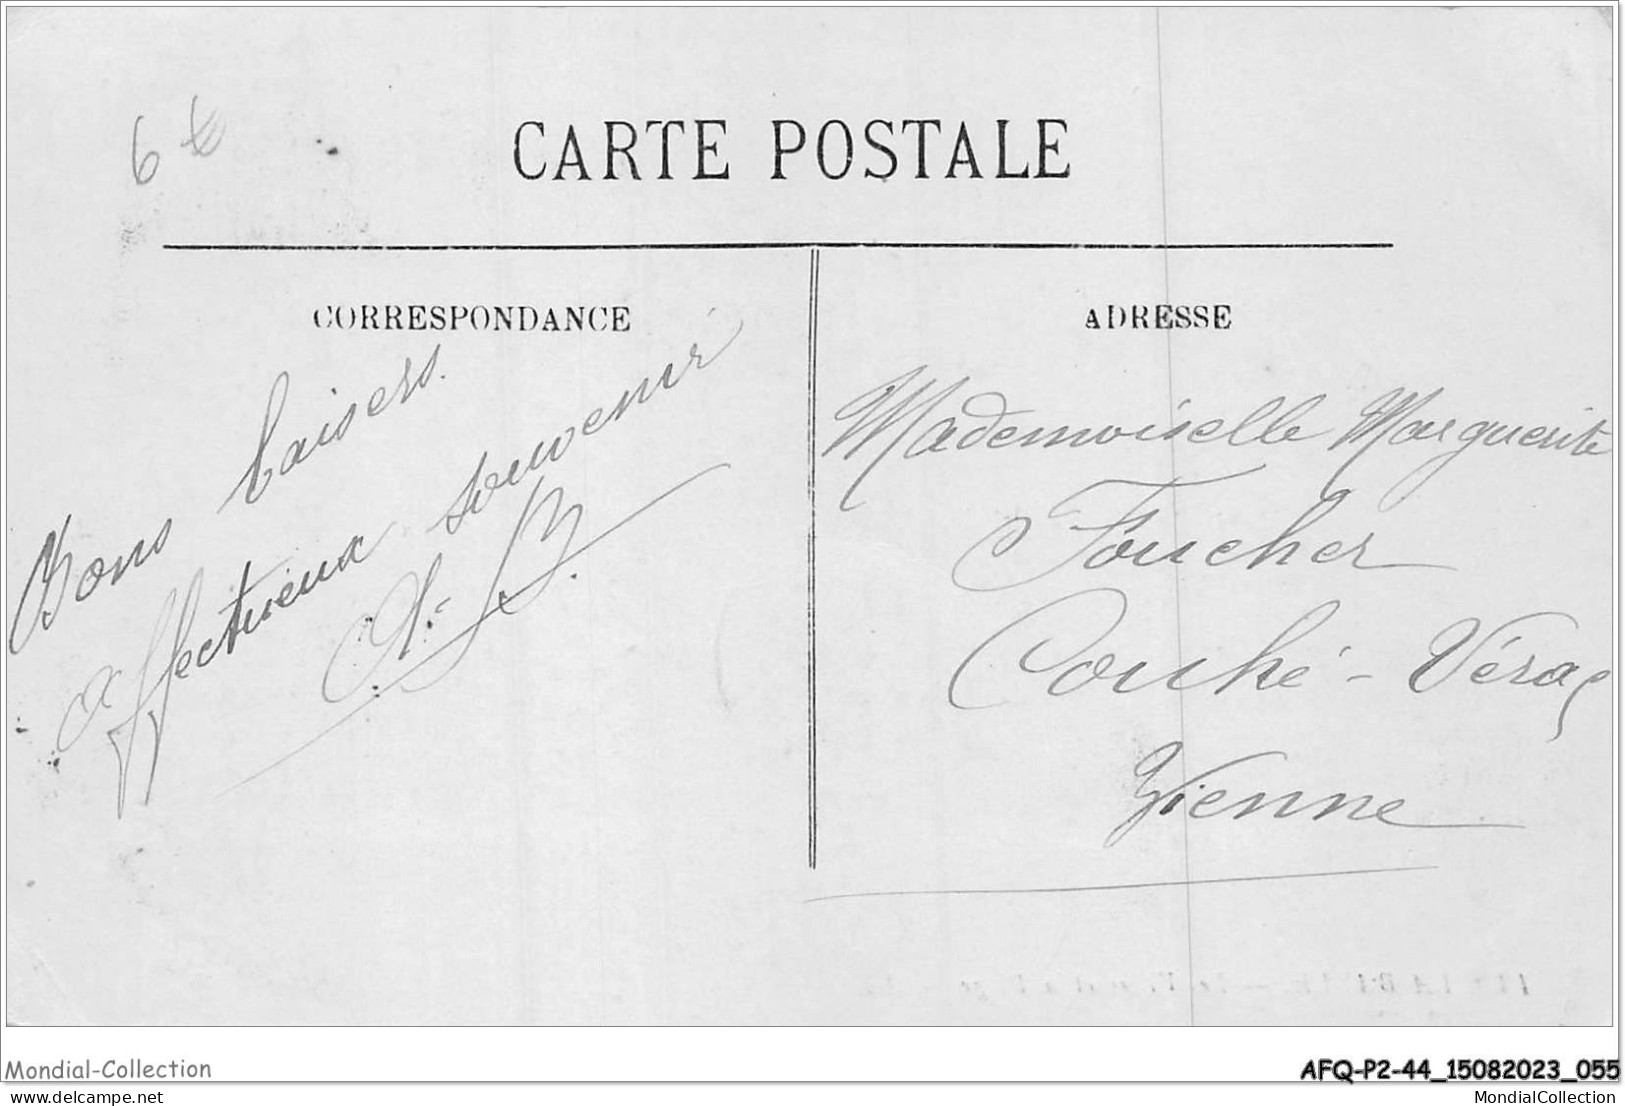 6 €
CARTE POSTALE
CORRESPONDANCE
Bons baisers.
affectueux souvenir
ADRESSE
Mademoiselle Marguerite
Foucher
Couhé-Vérac
Vienne
Mondial-Collection
AFQ-P2-44_15082023_055
delcampe.net
MondialCollection